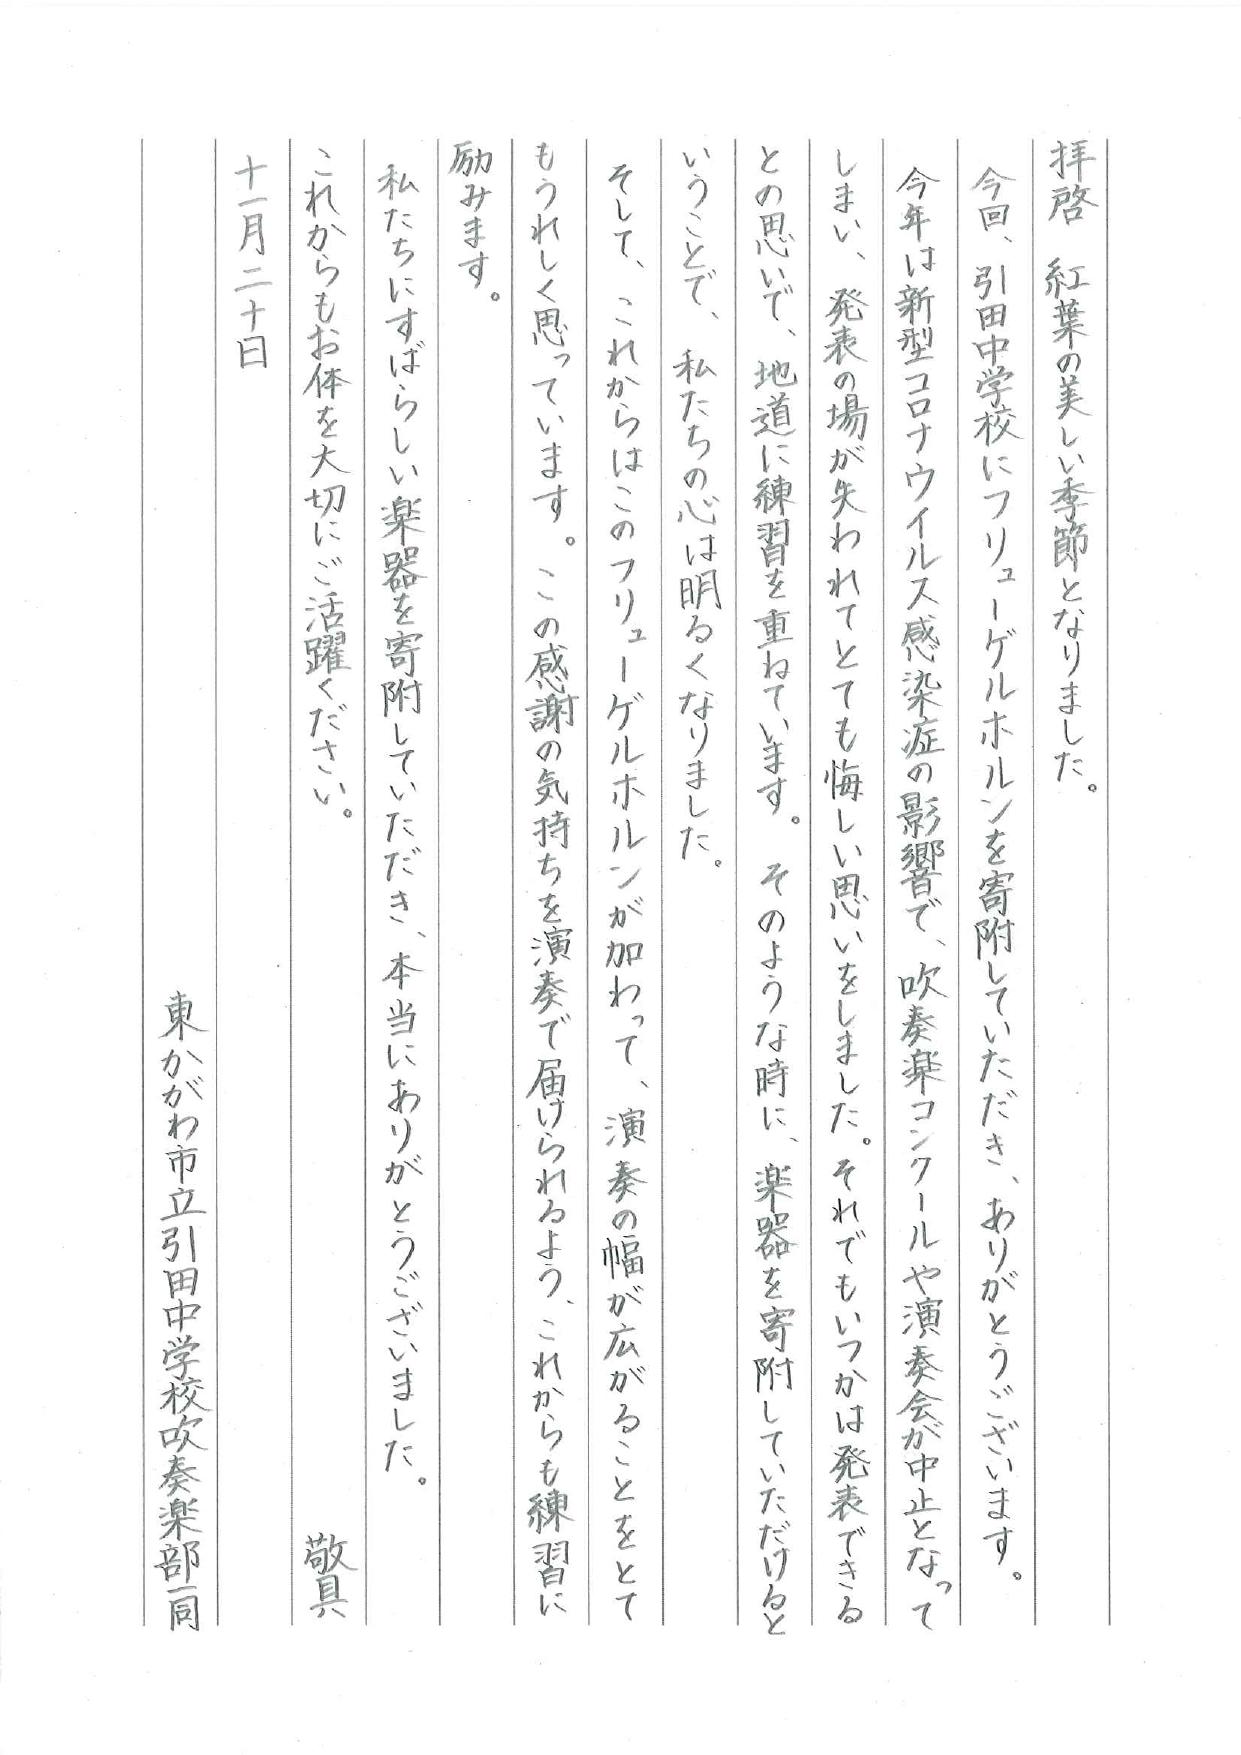 拝啓　紅葉の美しい季節となりました。
今回、引田中学校にフリューゲルホルンを寄附していただき、ありがとうございます。
今年は新型コロナウイルス感染症の影響で、吹奏楽コンクールや演奏会が中止となって
しまい、発表の場が失われてとても悔しい思いをしました。それでもいつかは発表できる
との思いで、地道に練習を重ねています。そのような時に、楽器を寄附していただけると
いうことで、私たちの心は明るくなりました。
そして、これからはこのフリューゲルホルンが加わって、演奏の幅が広がることをとて
もうれしく思っています。この感謝の気持ちを演奏で届けられるよう、これからも練習に
励みます。
私たちにすばらしい楽器を寄附していただき、本当にありがとうございました。
これからもお体を大切にご活躍ください。　敬具
十一月二十日
東かがわ市立引田中学校吹奏楽部一同